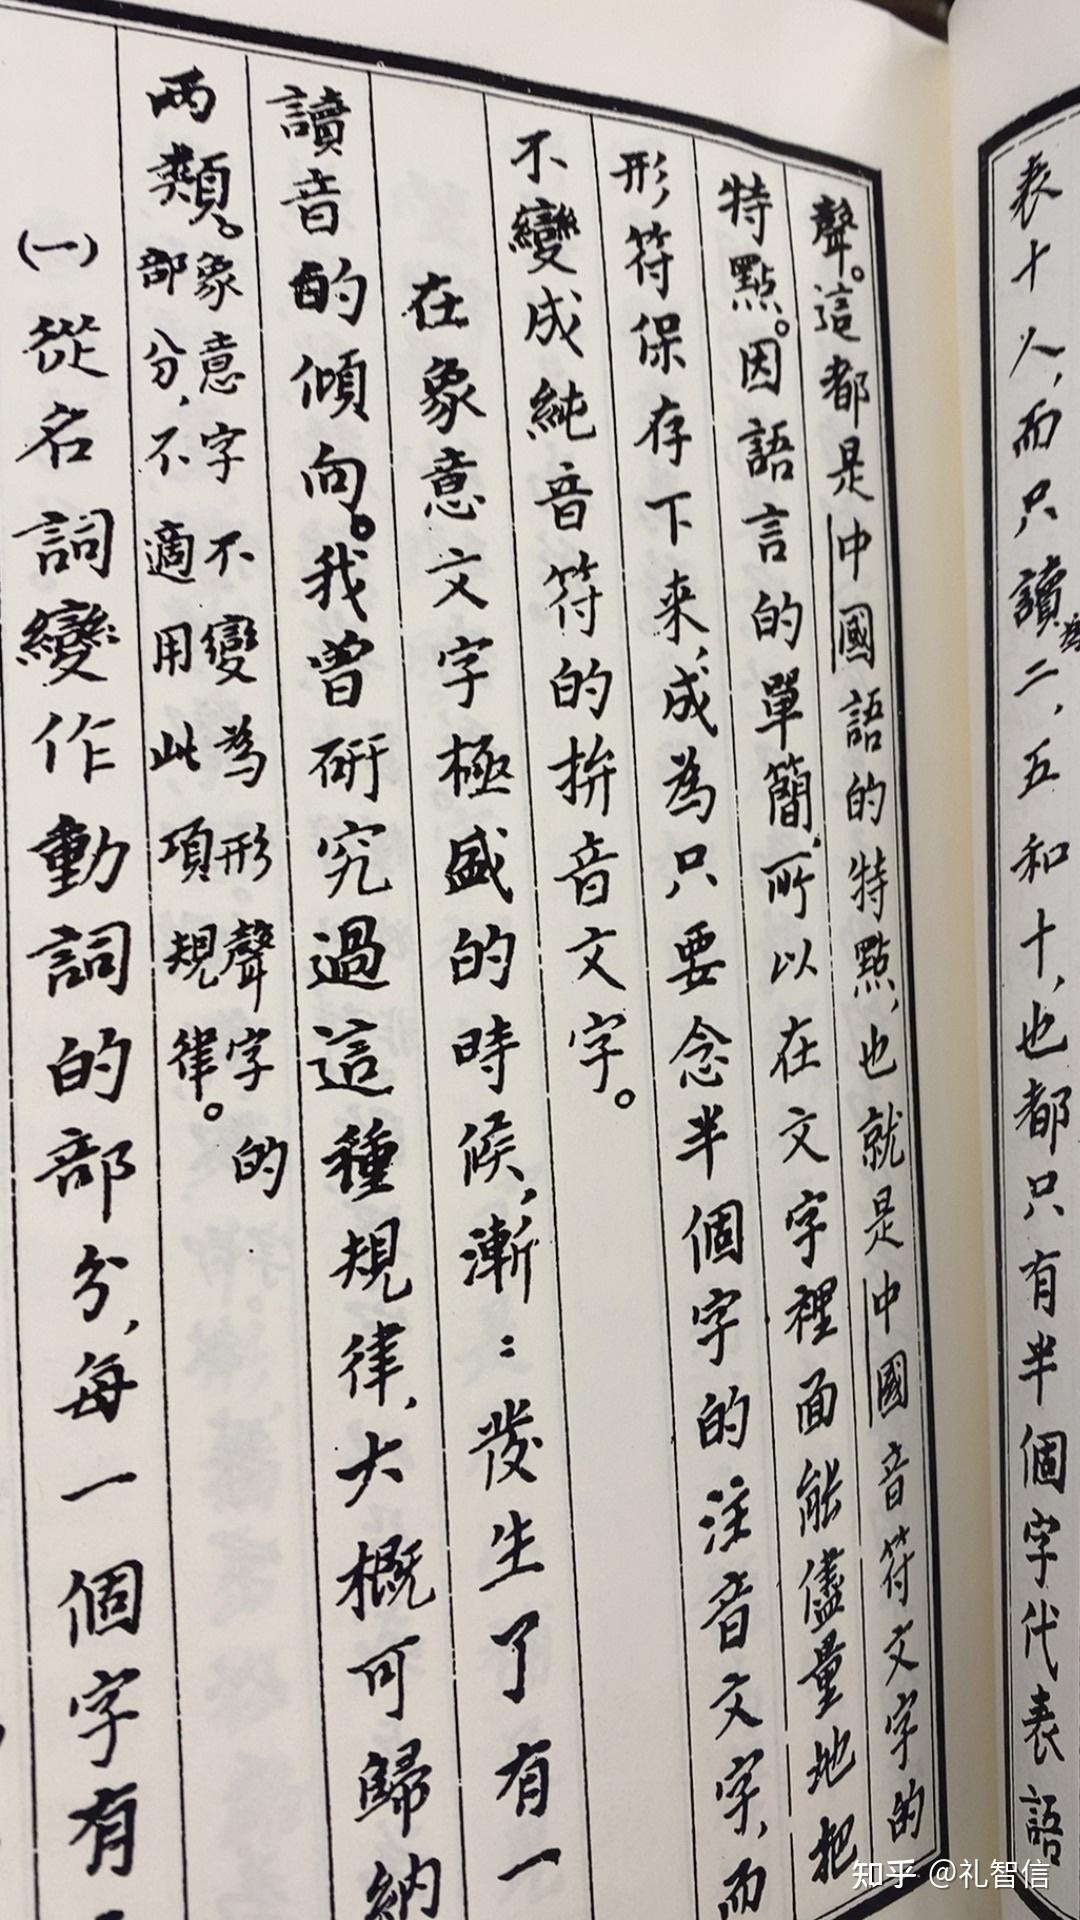 表十人，而只讀二，五和十，也都只有半個字代表語
聲。這都是中國語的特點，也就是中國音符文字的
特點。因語言的單簡，所以在文字裡面能儘量地把
形符保存下来，成為只要念半個字的注音文字，而
不變成純音符的拚音文字。
在象意文字極盛的時候，漸：發生了有一
讀音的傾向。我曾研究過這種規律，大概可歸納
兩類。
象意字不變為形聲字的
部分，不適用此項規律。
(一)從名詞變作動詞的部分，每一個字有
知乎 @礼智信